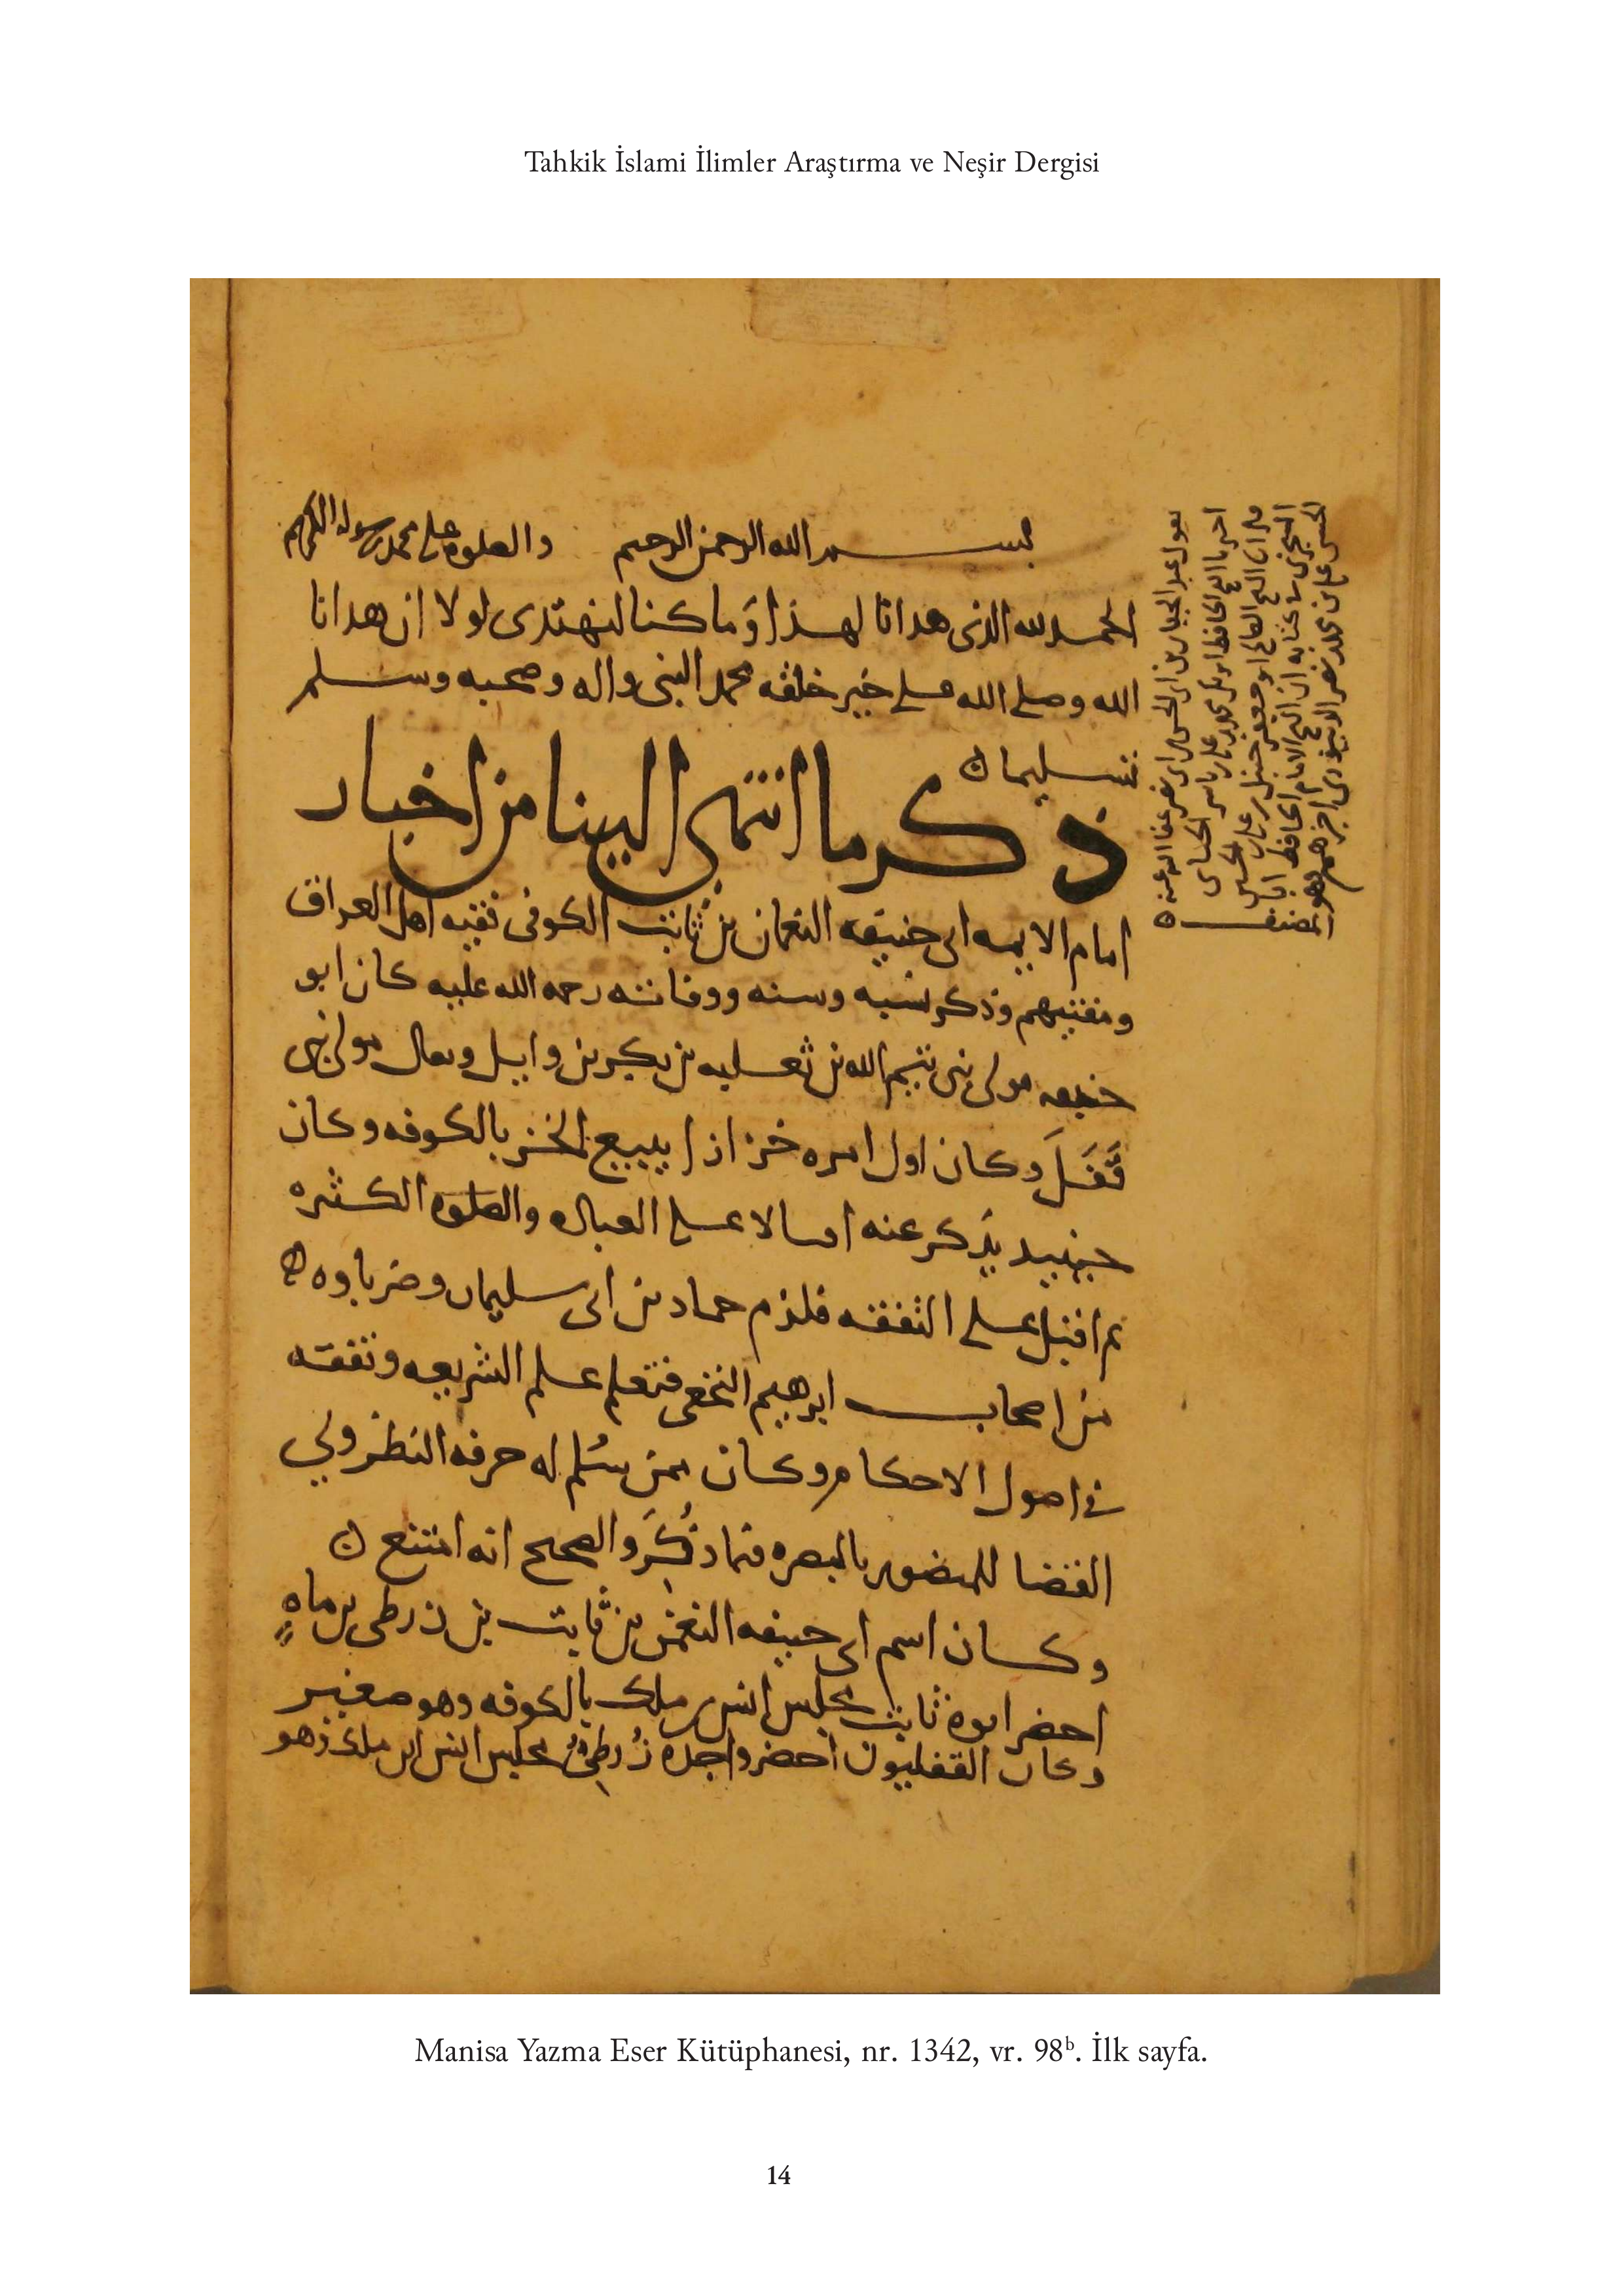 Tahkik İslami İlimler Araştırma ve Neşir Dergisi
بسم الله الرحمن الرحيم والصلوة على محمد رسوله الكريم
الحمد لله الذى هدانا لهذا وَما كنا لنهتدى لولا ان هدانا
الله وصلى الله على خير خلقه محمد النبى واله وصحبه وسلم
تسليما
ذكر ما انتهى الينا من اخبار
امام الايمه ابى حنيفه النعمان بن ثابت الكوفى فقيه اهل العراق
ومفتيهم وذكر نسبه وسنه ووفاته رحمه الله عليه كان ابو
حنيفه مولى بنى تيم الله بن ثعلبه بن بكر بن وايل ويقال مولى بنى
قَفَلَ وكان اول امره خزازا يبيع الخز بالكوفه وكان
حينيد يذكر عنه اقبالا على العباده والصلوه الكثره
ثم اقبل على التفقه فلزم حماد بن ابى سليمان وضرباوه
من اصحاب ابرهيم النخعى فتعلم علم الشريعه وتفقه
فى اصول الاحكام وكان ممن سُلم له حرفه النظر ولي
القضا للمنصور بالبصره فيما ذُكِرَ والصحيح انه امتنع
وكان اسم ابى حنيفه النعمن بن ثابت بن زرطى بن ماه
احضر ابوه ثابت مجلس انس بن ملك بالكوفه وهو صغير
وكان القفليون احضروا جده زُرطىُّ مجلس انس ابن ملك وهو
يقول عبد الجبار بن ابى الحسن بن ابى نصر عفا الله عنه
اخبرنا الشيخ الحافظ ابو بكر محمد بن على بن ياسر
الشيخ الامام الحافظ
الحسن على بن محمد بن نصر
المصنف
Manisa Yazma Eser Kütüphanesi, nr. 1342, vr. 98ᵇ. İlk sayfa.
14